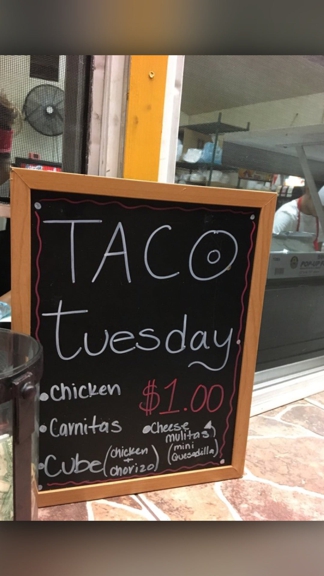 TACO
tuesday.
• Chicken $1.00
• Carnitas
• Cheese mulitas (mini Quesadilla)
• Cube (chicken + chorizo)